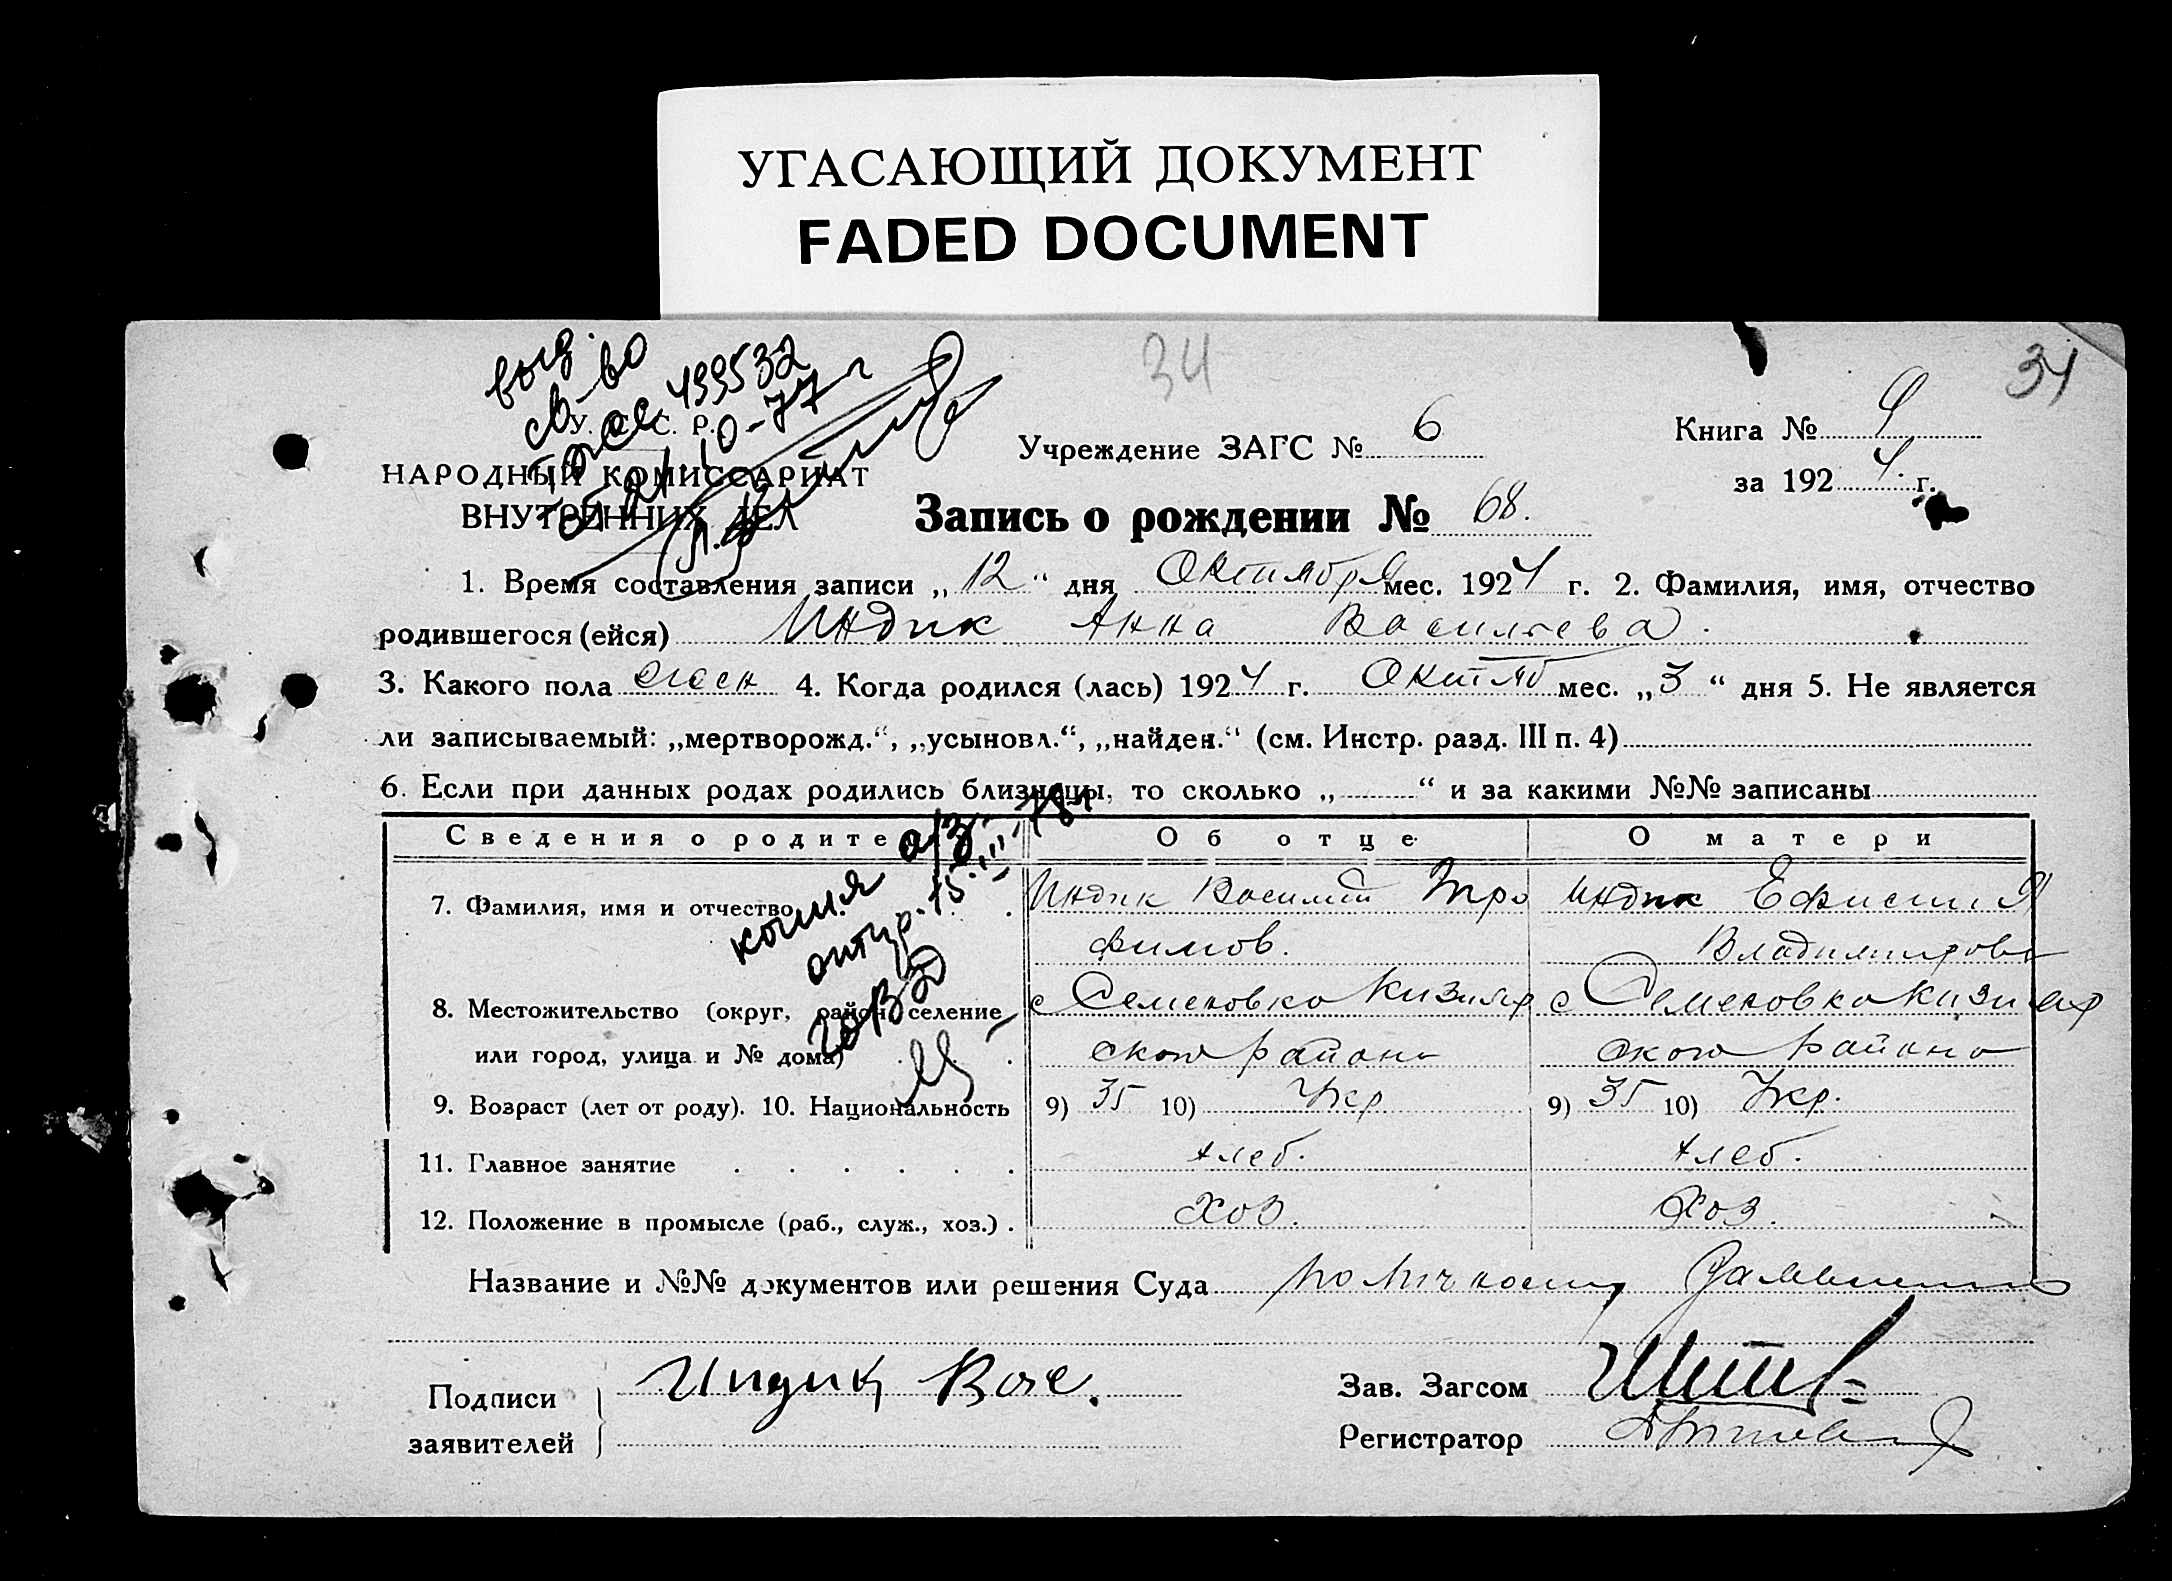 УГАСАЮЩИЙ ДОКУМЕНТ
FADED DOCUMENT
34
34
выд.
св-во
499532
10-77 г
У. С. С. Р.
НАРОДНЫЙ КОМИССАРИАТ
ВНУТРЕННИХ ДЕЛ
Учреждение ЗАГС № 6
Книга №
за 1924 г.
Запись о рождении № 68.
1. Время составления записи „12“ дня Октября мес. 1924 г. 2. Фамилия, имя, отчество
родившегося (ейся) Индик Анна Васильева.
3. Какого пола женск 4. Когда родился (лась) 1924 г. Октяб мес. „3“ дня 5. Не является
ли записываемый: „мертворожд.“, „усыновл.“, „найден.“ (см. Инстр. разд. III п. 4)
6. Если при данных родах родились близнецы, то сколько „ “ и за какими №№ записаны
Сведения о родите Об отце О матери
копия а/з
15.III-78г
7. Фамилия, имя и отчество Индик Василий Тро Индик Ефисиия
фимов. Владимирова
8. Местожительство (округ, район, селение с Семеновка Кизияр с Семеновка Кизияр
или город, улица и № дома) ского района ского района
9. Возраст (лет от роду). 10. Национальность 9) 35 10) Укр 9) 35 10) Укр.
11. Главное занятие хлеб. хлеб.
12. Положение в промысле (раб., служ., хоз.) хоз. хоз.
Название и №№ документов или решения Суда по личному заявлению
Подписи Индик Вас.
заявителей
Зав. Загсом
Регистратор